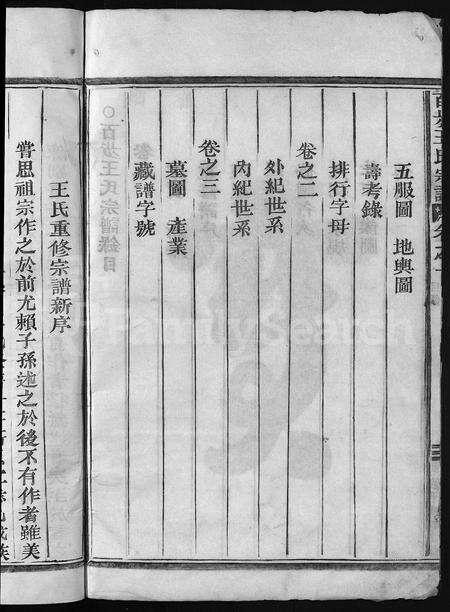 百步王氏宗譜
五服圖　地輿圖
壽考錄
排行字母
卷之二
外紀世系
內紀世系
卷之三
墓圖　產業
藏譜字號
王氏重修宗譜新序
嘗思祖宗作之於前尤賴子孫述之於後不有作者雖美
FamilySearch